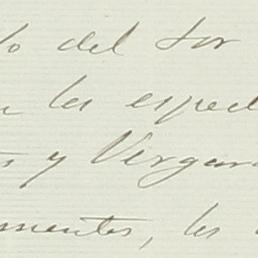 lo del Sor
n les espec
s y Vergar
mentos, les